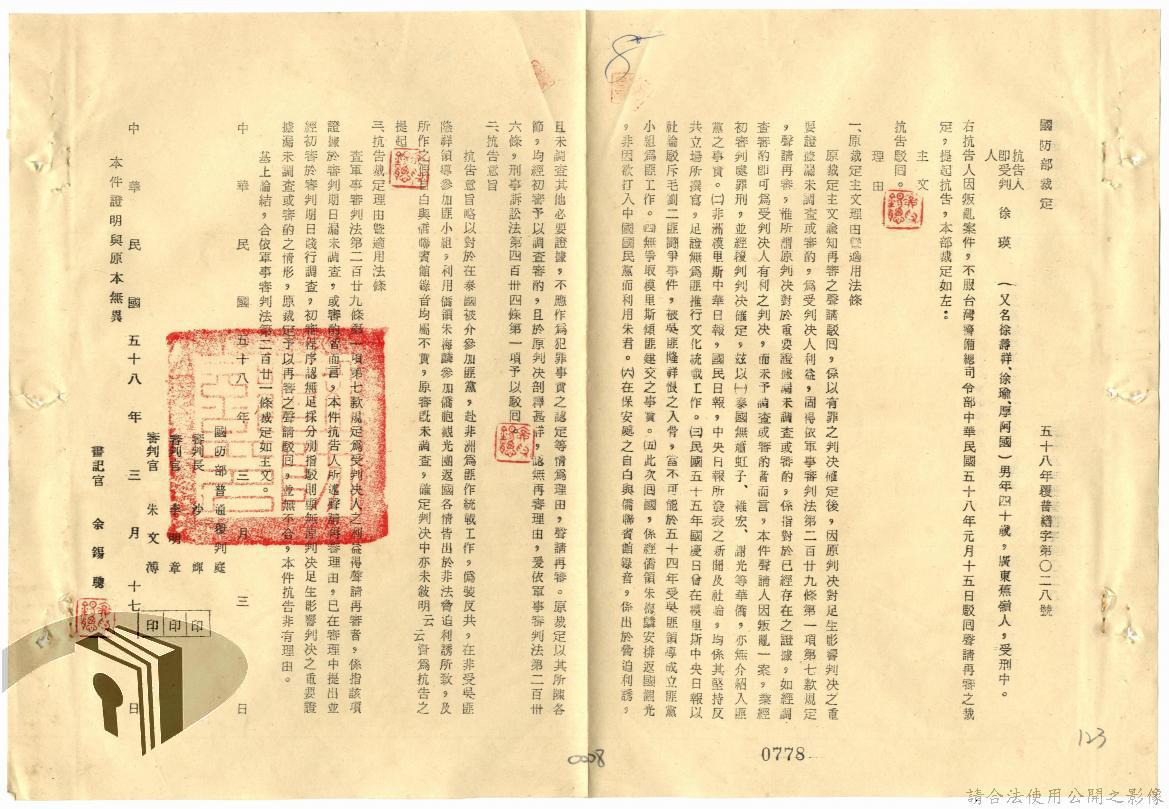 國防部裁定
五十八年覆普繕字第〇二八號
抗告人
即受判　徐　瑛　（又名徐壽祥、徐瑜、厚阿國）男年四十歲，廣東蕉嶺人，受刑中。
人
右抗告人因叛亂案件，不服台灣警備總司令部中華民國五十八年元月十五日駁囘聲請再審之裁
定，提起抗告，本部裁定如左：
主　文
抗告駁囘。
理　由
一、原裁定主文理由暨適用法條
原裁定主文諭知再審之聲請駁囘，係以有罪之判決確定後，因原判決對足生影響判決之重
要證據漏未調查或審酌，為受判決人利益，固得依軍事審判法第二百廿九條第一項第七款規定
，聲請再審，惟所謂原判決對於重要證據漏未調查或審酌，係指對於已經存在之證據，如經調
查審酌即可為受判決人有利之判決，而未予調查或審酌者而言，本件聲請人因叛亂一案，業經
初審判處罪刑，並經覆判判決確定，茲以㈠泰國無蕭虹子、維宏、謝光等華僑，亦無介紹入匪
黨之事實。㈡非洲模里斯中華日報，國民日報，中央日報所發表之新聞及社論，均係其堅持反
共立場所撰寫，足證無為匪推行文化統戰工作。㈢民國五十五年國慶日曾在模里斯中央日報以
社論駁斥毛劉二匪鬪爭事件，被吳匪隆祥恨之入骨，當不可能於五十四年受吳匪領導成立匪黨
小組為匪工作。㈣無爭取模里斯傾匪建交之事實。㈤此次囘國，係經僑領朱海麟安排返國觀光
，非因欲打入中國國民黨而利用朱君。㈥在保安處之自白與僑聯賓館錄音，係出於脅迫利誘，
且未調查其他必要證據，不應作為犯罪事實之認定等情為理由，聲請再審。原裁定以其所陳各
節，均經初審予以調查審酌，且於原判決剖釋甚詳，認無再審理由，爰依軍事審判法第二百卅
六條，刑事訴訟法第四百卅四條第一項予以駁囘。
二、抗告意旨
抗告意旨略以對於在泰國被介參加匪黨，赴非洲為匪作統戰工作，偽裝反共，在非受吳匪
隆祥領導參加匪小組，利用僑領朱海麟參加僑胞觀光團返國各情皆出於非法脅迫利誘所致，及
所作之假自白與僑聯賓館錄音均屬不實，原審既未調查，確定判決中亦未敘明云云資為抗告之
提起。
三、抗告裁定理由暨適用法條
查軍事審判法第二百廿九條第一項第七款規定為受判決人之利益得聲請再審者，係指該項
證據於審判期日漏未調查，或審酌者而言，本件抗告人所述聲請再審理由，已在審理中提出並
經初審於審判期日踐行調查，初審程序認無足採分別指駁則顯無原判決足生影響判決之重要證
據漏未調查或審酌之情形，原裁定予以再審之聲請駁囘，並無不合，本件抗告非有理由。
基上論結，合依軍事審判法第二百廿一條裁定如主文。
中華民國五十八年三月三日
國防部普通覆判庭
審判長　沙　輝
審判官　李明章
審判官　朱文溥
印
印
印
中華民國五十八年三月十七日
書記官　余錫聰
本件證明與原本無異
0008
0778
123
請合法使用公開之影像